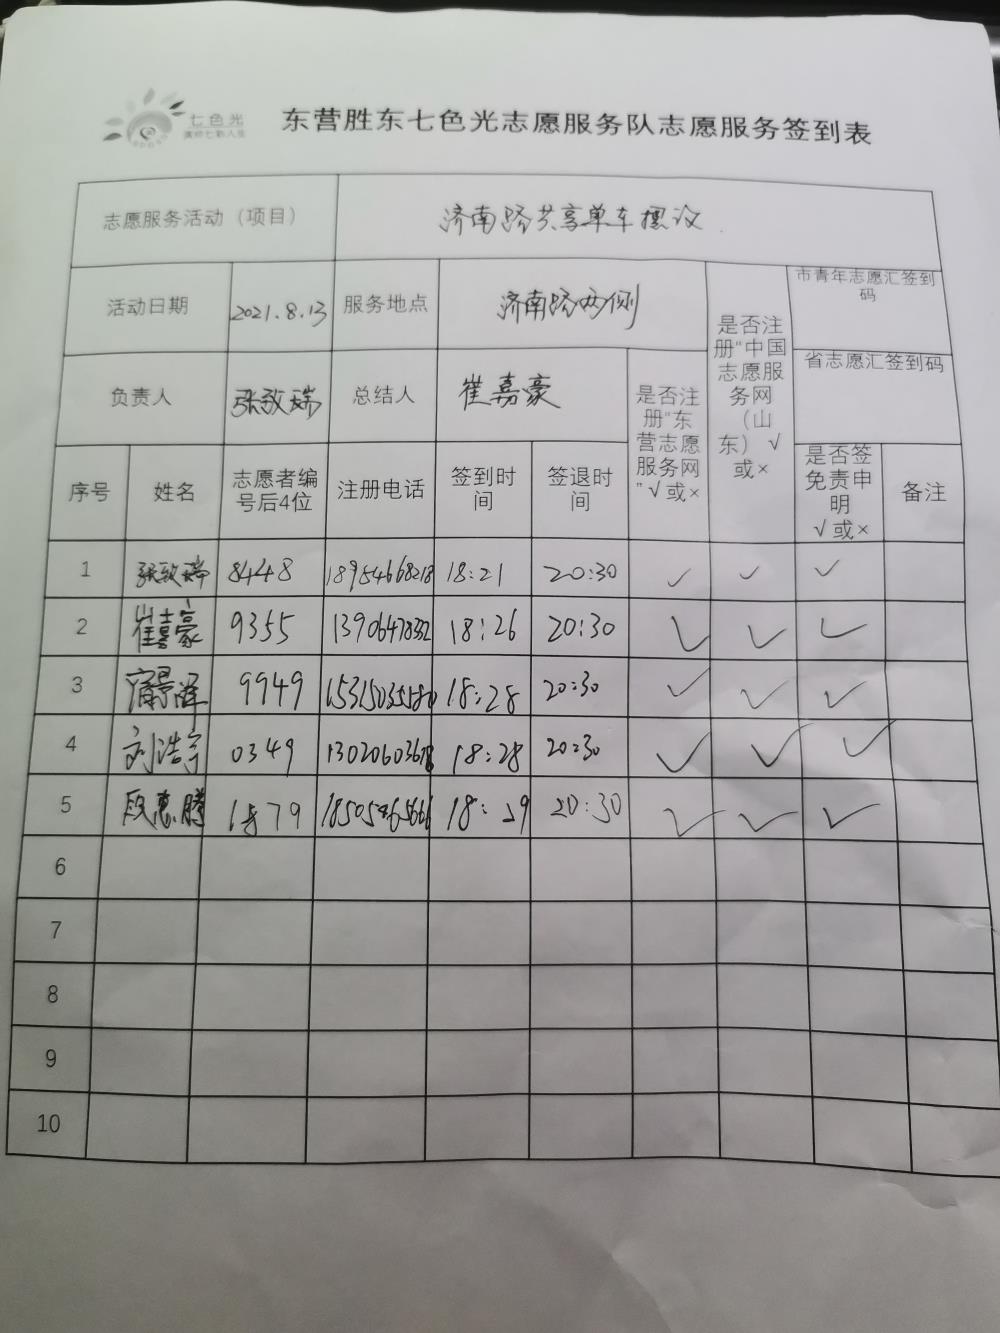 七色光
东营胜东七色光志愿服务队志愿服务签到表
志愿服务活动（项目） 济南路共享单车摆放
活动日期 2021.8.13 服务地点 济南路两侧
是否注册“中国志愿服务网（山东）√或×
市青年志愿汇签到码
负责人 张致瑞 总结人 崔嘉豪
是否注册“东营志愿服务网”√或×
省志愿汇签到码
序号 姓名 志愿者编号后4位 注册电话 签到时间 签退时间 是否签免责申明√或× 备注
1 张致瑞 8448 18954668218 18:21 20:30 ✓ ✓ ✓
2 崔嘉豪 9355 18:26 20:30 ✓ ✓ ✓
3 9949 18:28 20:30 ✓ ✓ ✓
4 刘浩宇 0349 18:28 20:30 ✓ ✓ ✓
5 段惠腾 18:29 20:30 ✓ ✓ ✓
6
7
8
9
10